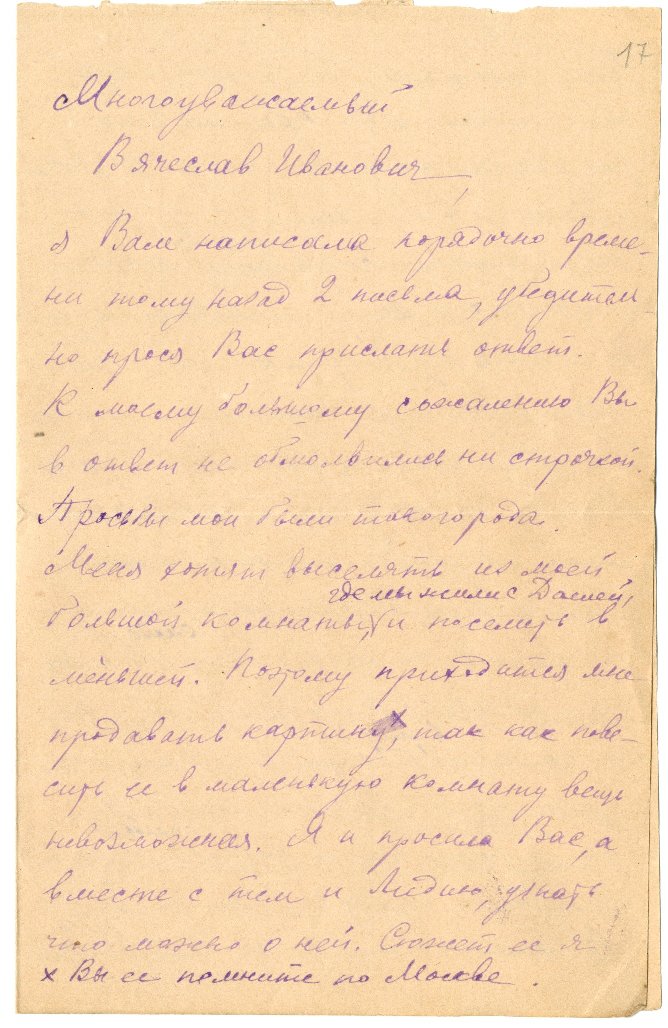 17
Многоуважаемый
Вячеслав Иванович,
я Вам написала порядочно време-
ни тому назад 2 письма, убедитель-
но прося Вас прислать ответ.
К моему большому сожалению Вы
в ответ не обмолвились ни строчкой.
Просьбы мои были такого рода.
Меня хотят выселять из моей
где мы жили с Дашей,
большой комнаты, и поселить в
меньшей. Поэтому приходится мне
продавать картину x, так как пове-
сить ее в маленькую комнату вещь
невозможная. Я и просила Вас, а
вместе с тем и Лидию, узнать
что можно о ней. Сюжет ее я
x Вы ее помните по Москве.